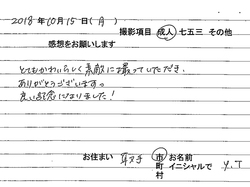 2018年10月15日(月)
撮影項目 成人 七五三 その他
感想をお願いします
とてもかわいらしく素敵に撮っていただき、
ありがとうございます。
良い記念になりました!
お住まい 取手 市 町 村 お名前 イニシャルで Y.T